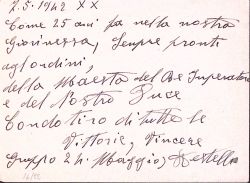 7.5.1942 XX
Come 25 anni fa nella nostra
Giovinezza, Sempre pronti
agl'ordini,
della Maestà del Re Imperatore
e del Nostro Duce
Condotiro di tutte le
Vittorie, Vincere
Gruppo 24 Maggio,